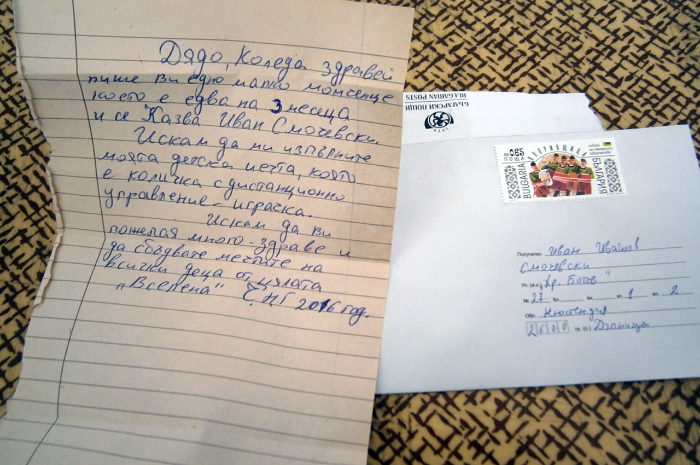 Дядо, Коледа здравей
пише Ви едно малко момченце
което е едва на 3 месеца
и се казва Иван Смочевски.
Искам да ми изпълните
моята детска мечта, която
е количка с дистанционно
управление - играчка.
Искам да Ви
пожелая много здраве и
да сбъдвате мечтите на
всички деца от цялата
"Вселена" ЧНГ 2016 год.
БЪЛГАРСКИ ПОЩИ
BULGARIAN POSTS
0.85
BULGARIA
БЪЛГАРИЯ
Получател Иван Ивайлов
Смочевски
ул. (ж.к.) "Хр. Ботев"
№ 27 бл. вх. 1 ап. 2
Обл. Кюстендил
2600 гр. (с.) Дупница